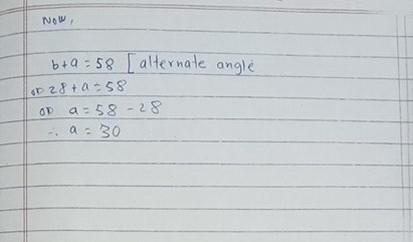 Now,
b+a = 58 [alternate angle
or 28+a = 58
or a = 58 - 28
∴ a = 30